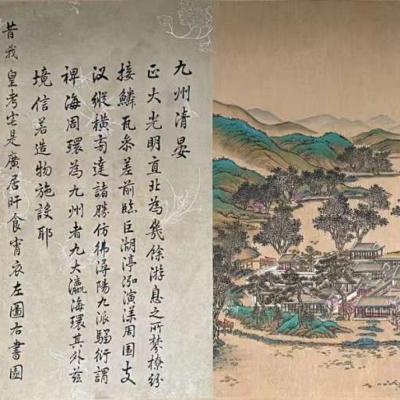 九州清晏
正大光明直北為幾餘游息之所棼橑紛
接鱗瓦參差前臨巨湖渟泓演漾周圍支
汊縱橫旁達諸勝仿彿潯陽九派騶衍謂
裨海周環為九州者九大瀛海環其外茲
境信若造物施設耶
昔我 皇考宅是廣居旰食宵衣左圖右書園